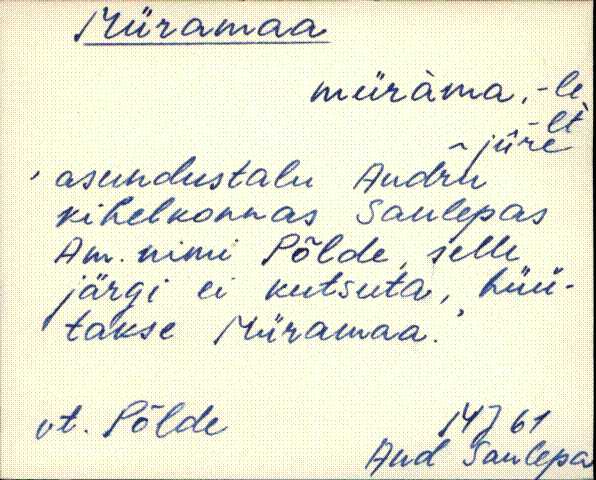 Müramaa
müràma, -le
-lt
~ jũre
' asundustalu Audru
kihelkonnas Saulepas
Am. nimi Põlde, selle
järgi ei kutsuta, hüü-
takse Müramaa.'
vt. Põlde
Aud Saulepa